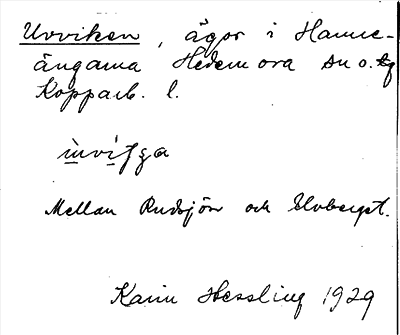 Uvviken, ägor i Hamre-
ängarna Hedemora sn o. tg
Kopparb. l.
Mellan Rudsjön och Uvberget.
Karin Hessling 1929